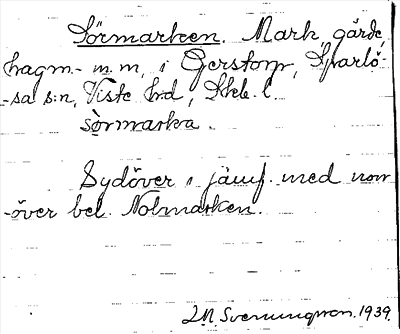 Sörmarken. Mark, gärde,
hagm. m. m. i Gerstorp, Sparlö-
-sa s:n, Viste hd, Skbl. l.
sörmarka.
Sydöver i jämf. med norr
-över bel. Nolmarken.
Svenungsson. 1939.